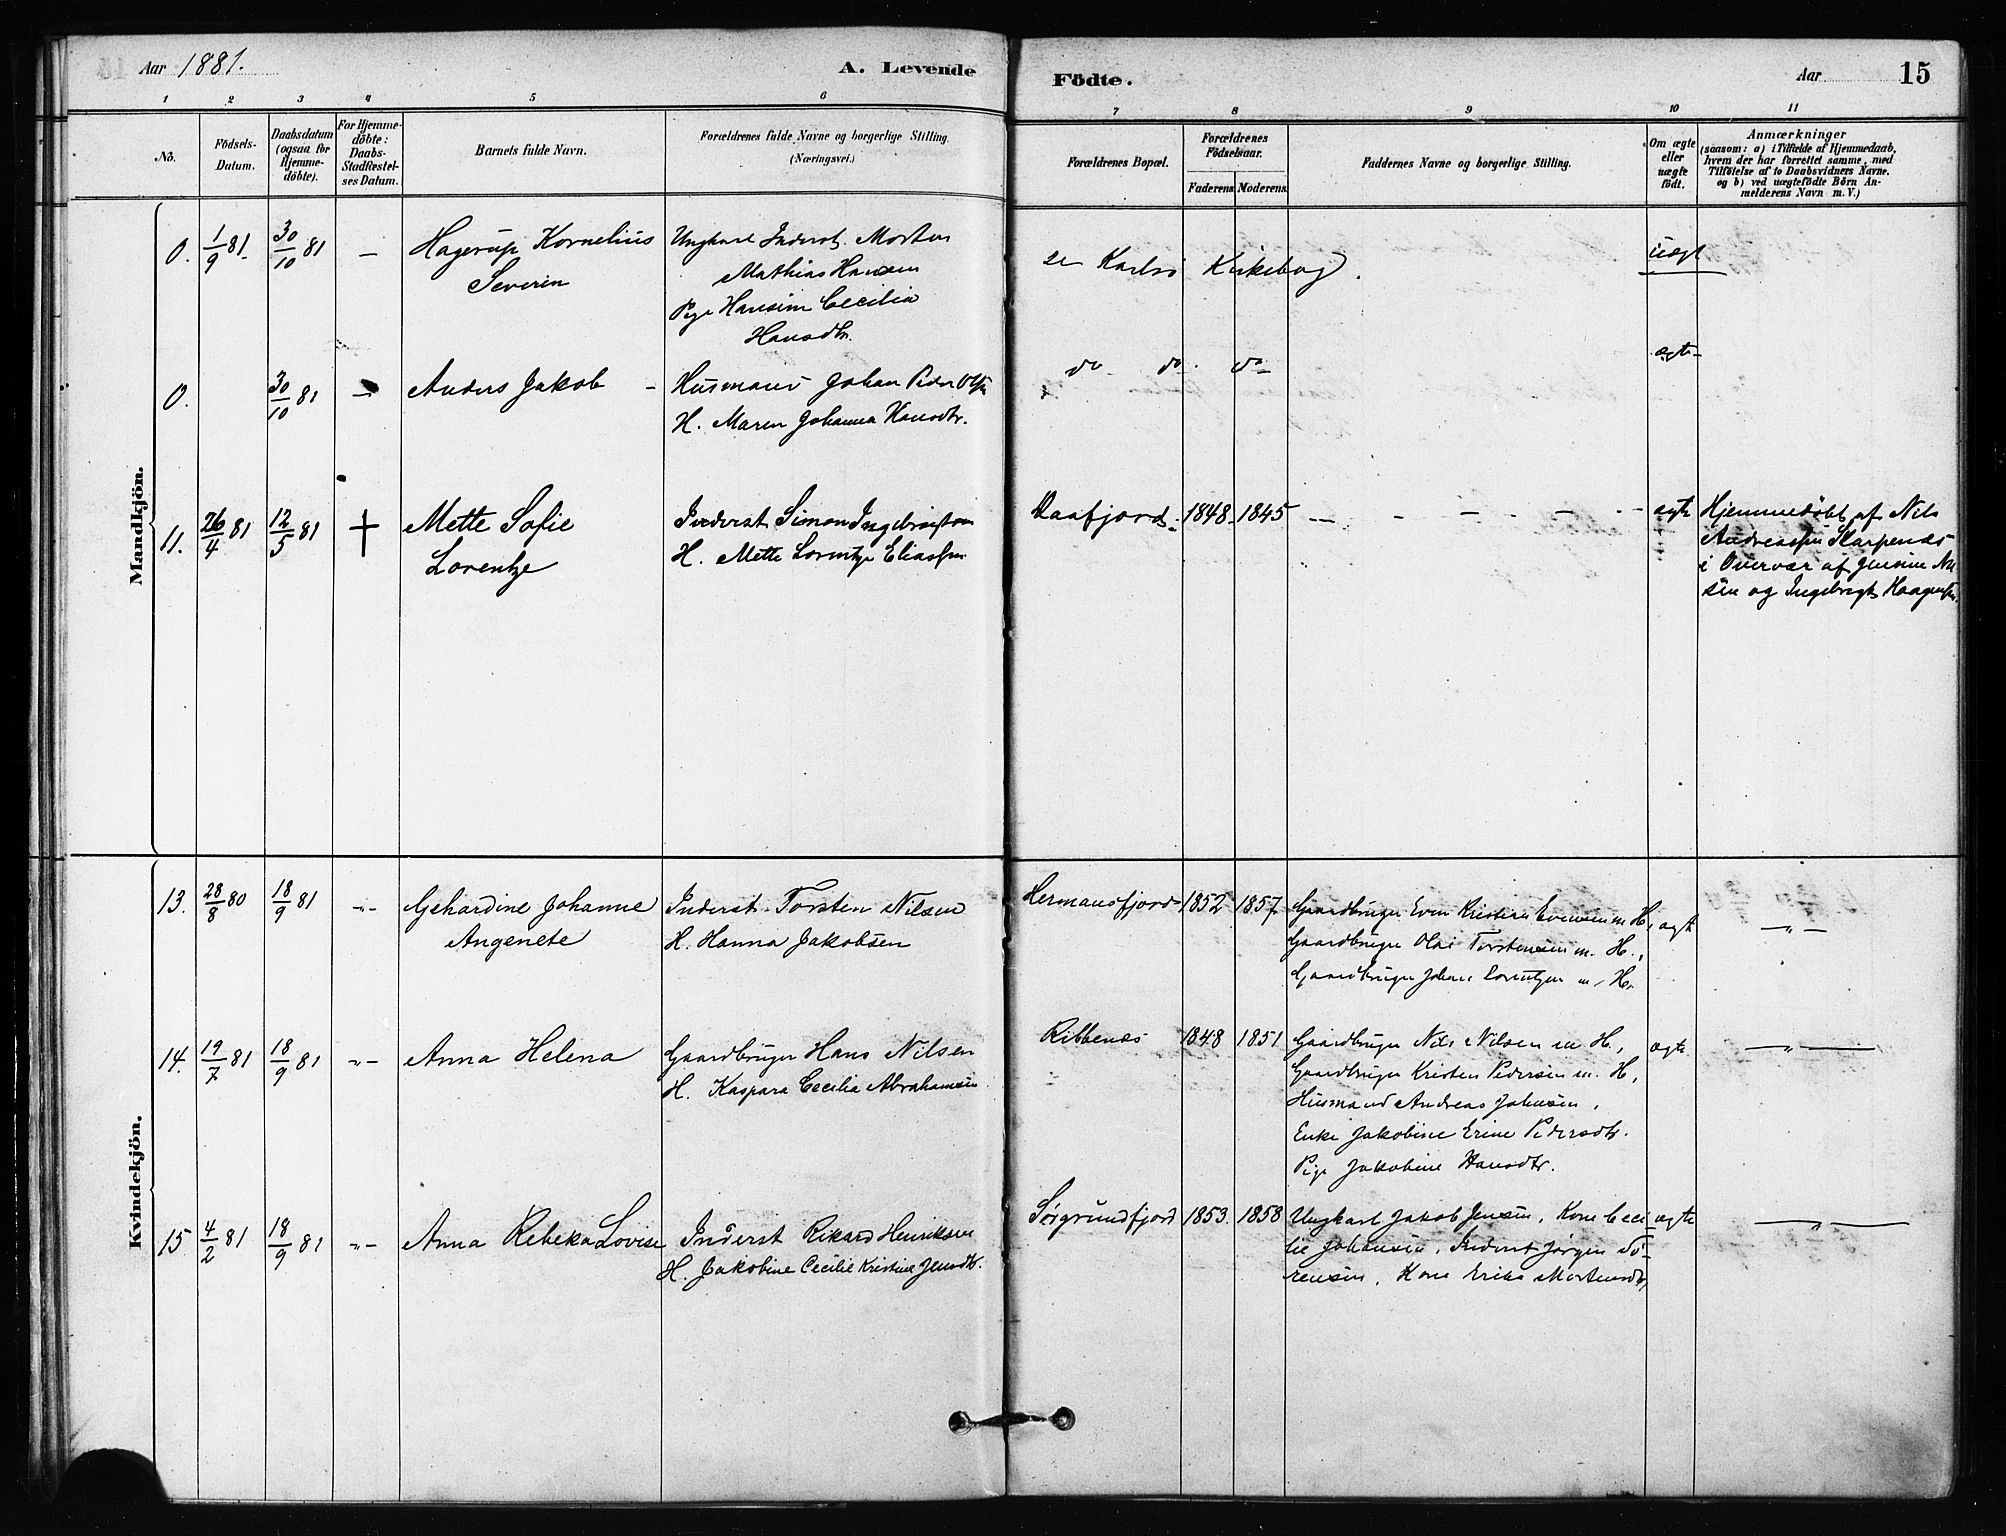 Aar 1881.
A. Levende
Födte.
Aar
15
1 2 3 4 5 6 7 8 9 10 11
No.
Födsels-
Datum.
Daabsdatum
(ogsaa for
Hjemme-
döbte).
For Hjemme-
döbte:
Daabs-
Stadfæstel-
ses Datum.
Barnets fulde Navn.
Forældrenes fulde Navne og borgerlige Stilling
(Næringsvei.)
Forældrenes Bopæl.
Forældrenes
Födselsaar.
Faderens Moderens
Faddernes Navne og borgerlige Stilling.
Om ægte
eller
uægte
födt.
Anmærkninger
(saasom: a) i Tilfælde af Hjemmedaab,
hvem der har forrettet samme, med
Tilföielse af to Daabsvidners Navne,
og b) ved uægtefödte Börn An-
melderens Navn m. V.)
Mandkjön.
0. 1/9 81. 30/10 81 — Hagerup Kornelius
Severin
Ungkarl Inderst. Morten
Mathias Hansen
Pige Hansine Cecilia
Hansdtr.
se Karlsö Kirkebog.
uægt
0. 30/10 81 — Anders Jakob -
Husmand Johan Peder Olsen
H. Maren Johanna Hansdtr.
do do. do
ægte
11. 26/4 81 12/5 81 + Mette Sofie
Lorentze
Inderst Simon Ingebrigtsen
H. Mette Lorentze Eliassen
Daafjord. 1848. 1845 — - - — - - -
ægte
Hjemmedöbt af Nils
Andreassen Skarpenæs
i Overvær af Jensine Nil
sen og Ingebrigt Haagensen.
Kvindekjön.
13. 28/8 80 18/9 81 -„- Gehardine Johanne
Angenete
Inderst Torsten Nilsen
H. Hanna Jakobsen
Hermansfjord 1852 1857
Gaardbruger Even Kristian Evensen m H,
Gaardbruger Olai Torstensen m. H.,
Gaardbruger Johan Lorentzen m, H,
ægte
—„—
14. 19/7 81 18/9 81 „- Anna Helena
Gaardbruger Hans Nilsen
H. Kaspara Cecilia Abrahamsen
Ribbenæs 1848 1851
Gaardbruger Nils Nilsen m H,
Gaardbruger Kristen Pedersen m. H,
Husmand Andreas Johnsen,
Enke Jakobine Erine Pedersdtr.
Pige Jakobine Hansdtr.
ægte
—„—
15 4/2 81 18/9 81 „- Anna Rebeka Lovise
Inderst Rikard Henriksen
H. Jakobine Cecilie Kristine Jensdtr.
Sörgrundfjord 1853. 1858
Ungkarl Jakob Jensen, Kone Ceci-
lie Johansen, Inderst Jörgen Sö-
rensen, Kone Erika Mortensdtr,
ægte
—„—